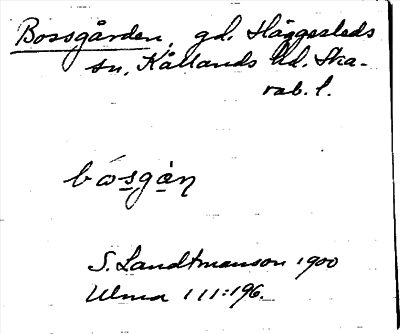 Bossgården, gd. Häggesleds
sn, Kållands hd. Ska-
rab. l.
S. Landtmanson 1900
Ulma 111:196.